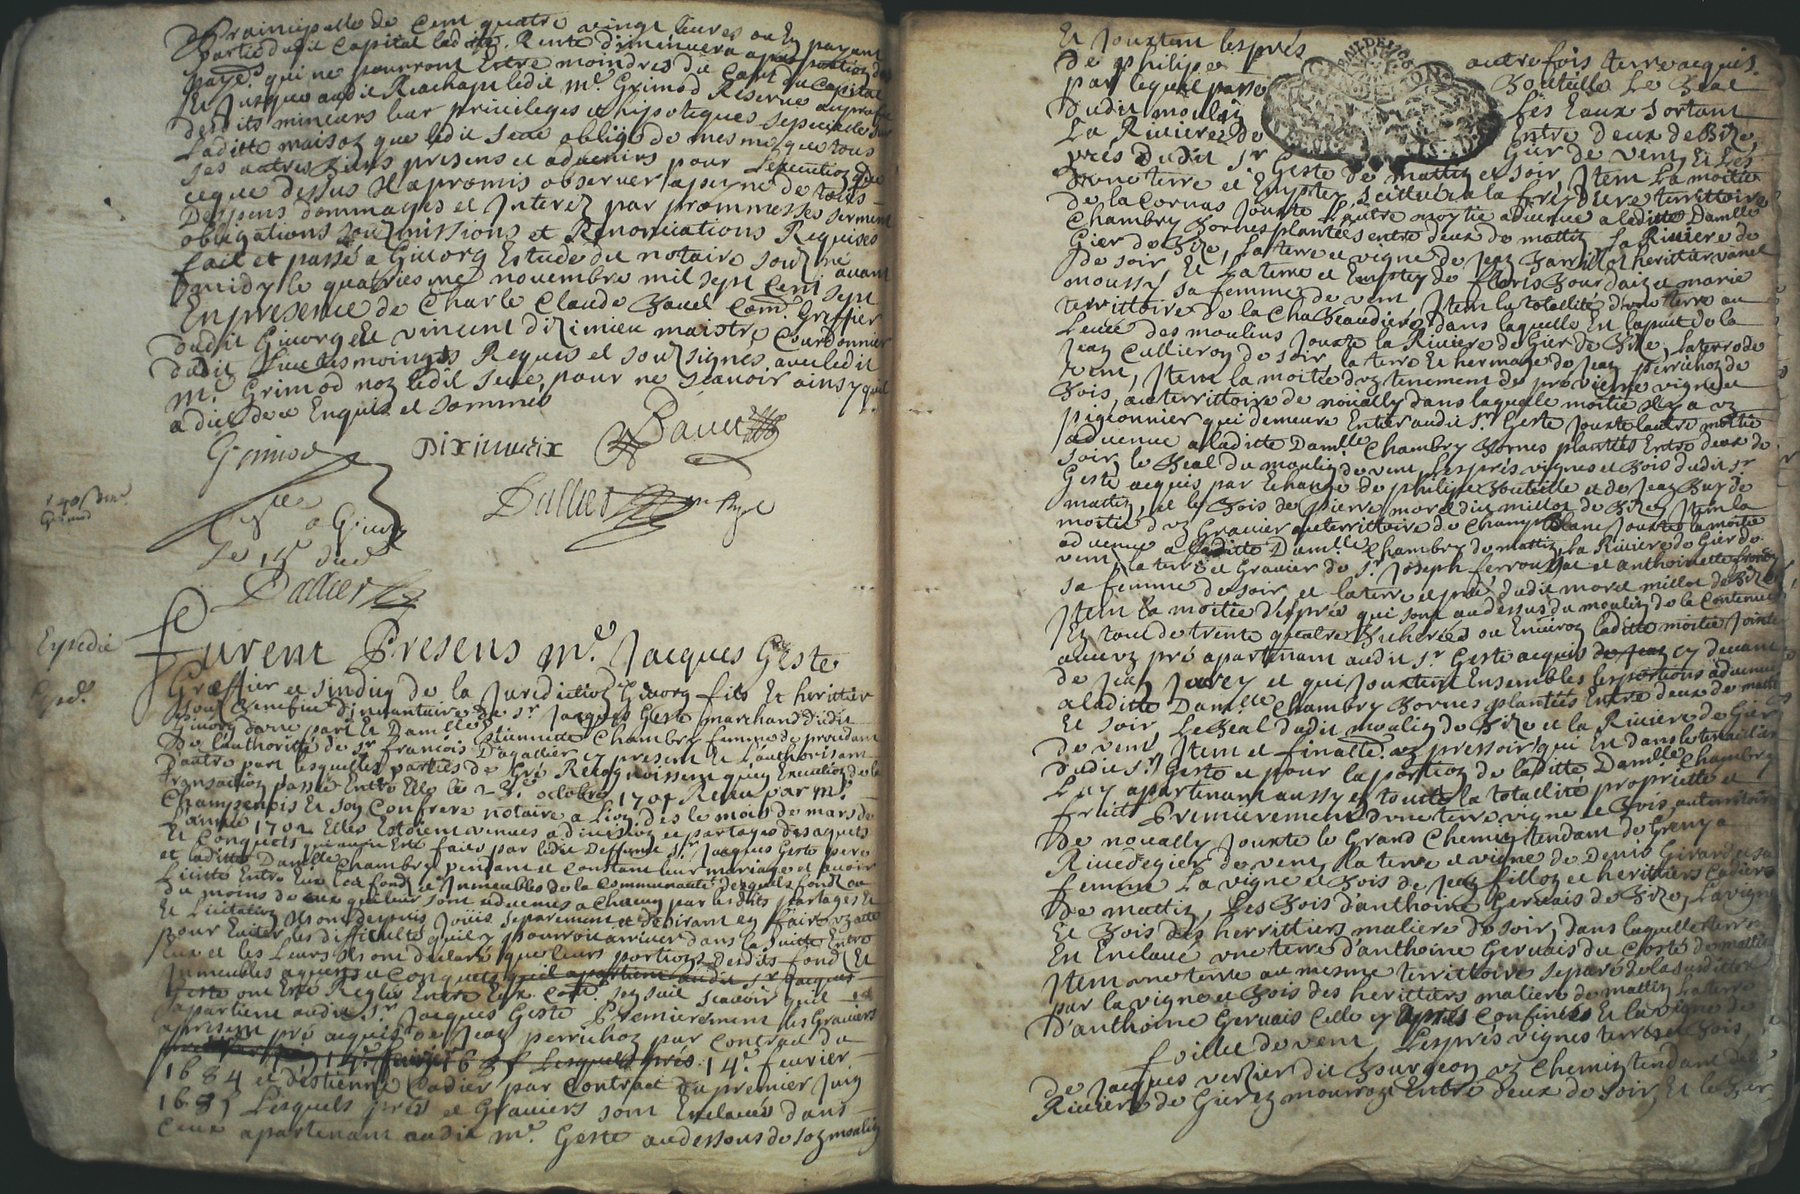 Principalle de Cent quatre vingt livres ou En payant
partie dudit Capital laditte Rente diminuera a proportion des
payes qui ne pourront Estre moindres du Capital
Et Jusques audit Reachapt ledit Me. Grimod Reserve au profit
desdits mineurs leur privileges et hipoteques speciale sur
Laditte maison que ledit Seve oblige de mesme que tous
ses autres Biens presens et advenirs pour L'execution de
ceque dessus Il a promis observer a peyne de tous
Despens dommages et Interez par prommesse serment
obligations soumissions et Renonciations Requises
fait et passé a Givorg Estude du notaire souzné avant
midy le quatriesme novembre mil sept Cent sept
En presence de Charle Claude Bavet Com. Greffier
dudit Givorg Et vincent Diximieu maistre Courdonnier
dudit Lieu tesmoings Requis et souzsignes avec ledit
Me. Grimod non ledit Seve pour ne scavoir ainsy quil
a dit de ce Enquis et sommé
Grimod Diximieux Bavet
Dallier
a Givorg
Le 15
Dallier
Expedie
Exped.
Furent Presens Me. Jacques Geste
Greffier et sindiq de la Juridiction de Givorg fils Et herittier
souz Benefice d'inventaire de Sr. Jacques Geste marchand dudit
Givorg d'une part Et Damlle Estiennette Chambry femme procedant
De L'authorité de Sr. francois Dagallier cy present Et L'authorisant
D'autre part lesquelles parties de Gré Recognoissent qu'en Execution de la
transaction passée Entre Elles le 23e. octobre 1701 Receu par Me.
Champsenois Et son Confrere notaire a Lion, des le mois de mars de
L'année 1702 Elles Estoient venues a division et partages des aquets
Et Conquets qui avoient Esté faits par ledit Deffunt Sr. Jacques Geste pere
et laditte Damlle Chambry pendant et Constant leur mariage et avoir
Licitté Entre Eux les fondz et Immeubles de la Communauté desquels fondz ou
du moins de ceux qui leur sont advenus a Chacun par lesdits partages Et
Et Licitation Ils ont depuis Jouis separement et desirant en faire un acte
pour Eviter les difficultés qu'il y pourroit arriver dans la suitte Entre
Eux et les Leurs Ils ont declaré que leurs portions desdits fondz Et
Immeubles aquets et Conquets quil apartient audit Sr. Jacques
Geste ont Esté Reglés Entre Eux Comme sensuit scavoir quil
apartient audit Sr. Jacques Geste Premierement les Graviers
apresent pré acquis de Jean perrichon par Contrat du
14e. fevrier 1684 Lesquels prés 14e. fevrier
1684 et d'estienne Cadier par Contract du premier Juin
1685 Lesquels prés et Graviers sont Enclavés dans
Ceux apartenant audit Me. Geste audessous de son moulin
Et Jouxtent les prés
De philipe autrefois terre acquis
par lequel passe Bouteille Le Beal
Dudit moulin les Eaux sortant
La Riviere de Entre deux de Bize,
prés dudit Sr. Geste de mattin et soir, Gier de vent, Et les
D'une terre et Emptey scittuée a la fregdiere territtoire Item La moitié
de la Cornas Jouxte L'autre moytié advenue a laditte Damlle
Chambry Bornes plantées entre deux de mattin, La Riviere de
Gier de Bize, La terre et vigne de Jean Barillot herittier vanel
de soir, Et La terre et Emptey de floris Bourdain et marie
moussy sa femme de vent, Item la totallité d'une terre au
territtoire de la Chabeaudiere dans laquelle Est la part de la
Levée des moulins Jouxte la Riviere de Gier de Bize, La terre de
Jean Cullieron de soir, la terre Et hermage de Jean perrichon de
vent, Item la moitié d'un tenement de pré vigne et
Bois, au territtoire de novally dans laquelle moitié Il y a un
pigeonnier qui demeure Entier audit Sr. Geste Jouxte lautre moitié
advenue a laditte Damlle Chambry Bornes plantées Entre deux de
soir, le Beal du moulin de vent, Les prés vignes et Bois dudit Sr.
Geste acquis par Echange de philipe Bouteille et de Jean Buy de
mattin, et le Bois de pierre morel dit millot de Bize, Item la
moitié d'un Gravier au territtoire de Champ blanc Jouxte la moitié
advenue a laditte Damlle Chambry de mattin, La Riviere de Gier de
vent, la terre et Gravier de Sr. Joseph ferrouillat et anthoinette
sa femme de soir, et la terre et pré dudit morel millot de Bize
Item la moitié des prés qui sont au dessus du moulin de la Contenue
En tout de trente quatre Bicherées ou Environ laditte moitié Jointe
avec un pré apartenant audit Sr. Geste acquis de Jean cy devant
de Jean Jourey et qui Jouxtent Ensembles les portions advenues
a laditte Damlle Chambry Bornes plantées Entre deux de mattin
Et soir, Le Beal dudit moulin de Bize et la Riviere de Gier
de vent, Item et finalle. un pressoir qui Est dans le tenailler
dudit Sr. Geste et pour la portion de laditte Damlle Chambry
Luy apartenant aussy en toutte la totallité proprietté et
fruits Premierement d'une terre vigne et Bois au territtoire
De novally Jouxte le Grand Chemin tendant de Grenya
Rivedegier de vent, la terre et vigne de Denis Girard et sa
femme La vigne et Bois de Jean fillon et herittiers Cadier
De mattin, Les Bois d'anthoine Gervais de Bize, La vigne
Et Bois des herrittiers maliere de soir, dans laquelle terre
En Enclave une terre d'anthoine Gervais du Costé de mattin
Item une terre au mesme territtoire separé de la susditte
par la vigne et Bois des herittiers maliere de mattin, La terre
D'anthoine Gervais Celle cy apres Confinées Et la vigne de
foillet de vent, Les prés vignes terres et Bois
De Jacques versier dit Bourgeon un Chemin tendant de
Riviere de Gier en mourron Entre deux de soir, Et le Bar-